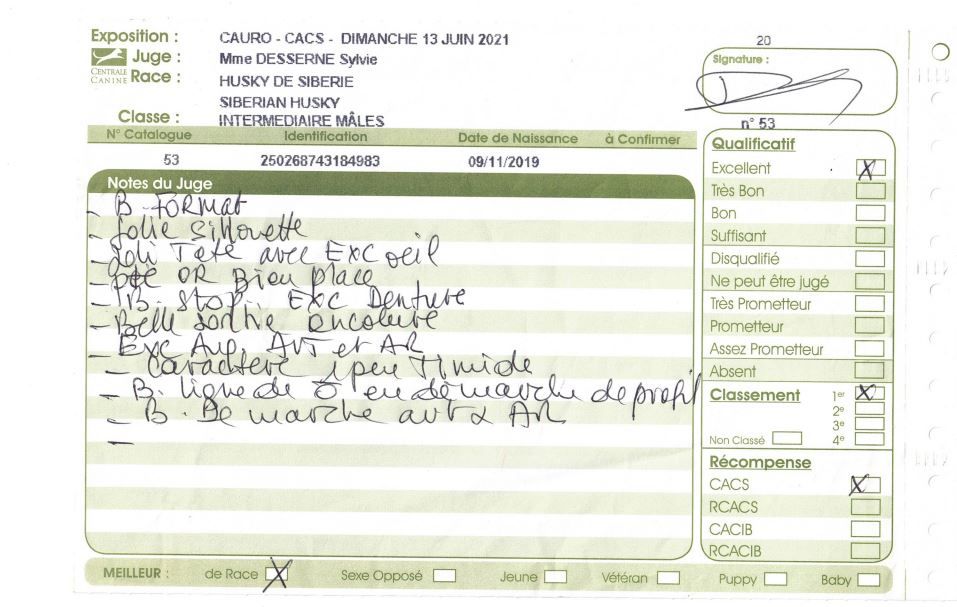 Exposition : CAURO - CACS - DIMANCHE 13 JUIN 2021
CENTRALE CANINE
Juge : Mme DESSERNE Sylvie
Race : HUSKY DE SIBERIE
SIBERIAN HUSKY
Classe : INTERMEDIAIRE MÂLES
20
Signature :
N° Catalogue Identification Date de Naissance à Confirmer
53 250268743184983 09/11/2019
Notes du Juge
- B. FORMAT
- Jolie Silhouette
- Joli Tete avec Exc oeil
- OR Bien placé
- TB. Stop. Exc Denture
- Belle Sortie encolure
- Exc Ang. AVT et AR
- Caractere 1 peu Timide
- B. ligne de en démarche de profil
- B. De marche avt AR
-
n° 53
Qualificatif
Excellent X
Très Bon
Bon
Suffisant
Disqualifié
Ne peut être jugé
Très Prometteur
Prometteur
Assez Prometteur
Absent
Classement 1er X
2e
3e
Non Classé 4e
Récompense
CACS X
RCACS
CACIB
RCACIB
MEILLEUR : de Race X Sexe Opposé Jeune Vétéran Puppy Baby